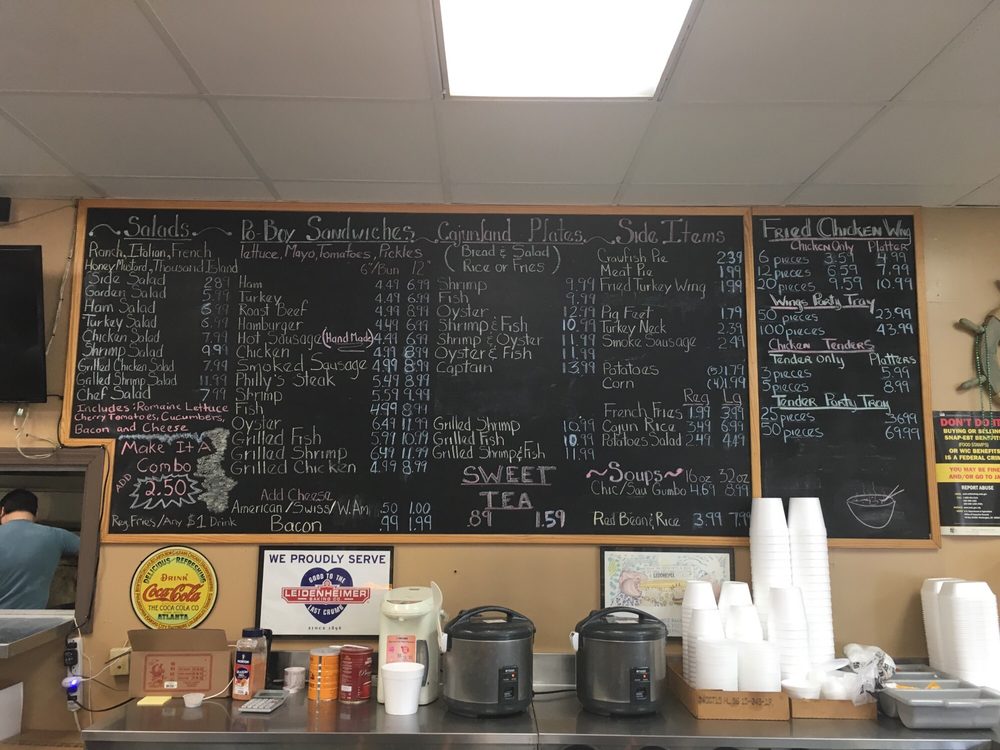 Salads
Ranch, Italian, French
Honey Mustard, Thousand Island
Side Salad 2.89
Garden Salad 5.99
Ham Salad 6.99
Turkey Salad 6.99
Chicken Salad 7.99
Shrimp Salad 9.99
Grilled Chicken Salad 7.99
Grilled Shrimp Salad 11.99
Chef Salad 7.99
Includes: Romaine Lettuce
Cherry Tomatoes, Cucumbers,
Bacon and Cheese
Make It A
Combo
ADD 2.50
Reg. Fries/Any $1 Drink
Po-Boy Sandwiches
lettuce, Mayo, Tomatoes, Pickles
6"/Bun 12"
Ham 4.49 6.99
Turkey 4.49 6.99
Roast Beef 4.99 8.99
Hamburger 4.49 6.99
Hot Sausage (Hand Made) 4.99 8.99
Chicken 4.99 8.99
Smoked Sausage 4.99 8.99
Philly's Steak 5.49 8.99
Shrimp 5.59 9.99
Fish 4.99 8.99
Oyster 6.49 11.99
Grilled Fish 5.97 10.99
Grilled Shrimp 6.49 11.99
Grilled Chicken 4.99 8.99
Add Cheese
American/Swiss/W.Am .50 1.00
Bacon .99 1.99
Cajunland Plates
(Bread & Salad
Rice or Fries)
Shrimp 9.99
Fish 9.99
Oyster 12.99
Shrimp & Fish 10.99
Shrimp & Oyster 11.99
Oyster & Fish 11.99
Captain 13.99
Grilled Shrimp 10.99
Grilled Fish 10.99
Grilled Shrimp & Fish 11.99
SWEET
TEA
.89 1.59
Side Items
Crawfish Pie 2.39
Meat Pie 1.99
Fried Turkey Wing 1.99
Pig Feet 1.79
Turkey Neck 2.39
Smoke Sausage 2.49
Potatoes (3) 1.79
Corn (4) 1.99
Reg Lg
French Fries 1.99 3.99
Cajun Rice 3.49 6.99
Potatoes Salad 2.49 4.49
~Soups~ 16oz 32oz
Chic/Sau Gumbo 4.69 8.99
Red Bean & Rice 3.99 7.99
Fried Chicken Wing
Chicken Only Platter
6 pieces 3.59 4.99
12 pieces 6.59 7.99
20 pieces 9.59 10.99
Wings Party Tray
50 pieces 23.99
100 pieces 43.99
Chicken Tenders
Tender Only Platters
3 pieces 5.99
5 pieces 8.99
Tender Party Tray
25 pieces 36.99
50 pieces 69.99
DON'T DO IT
BUYING OR SELLING
SNAP-EBT BENEFITS
(FOOD STAMPS)
OR WIC BENEFITS
IS A FEDERAL CRIME
YOU MAY BE FINED
AND/OR GO TO JAIL
REPORT ABUSE
DELICIOUS-REFRESHING
DRINK
Coca-Cola
THE COCA COLA CO
ATLANTA
WE PROUDLY SERVE
GOOD TO THE
LEIDENHEIMER
BAKING CO.
LAST CRUMB
SINCE 1896
LEIDENHEIMER
MORTON